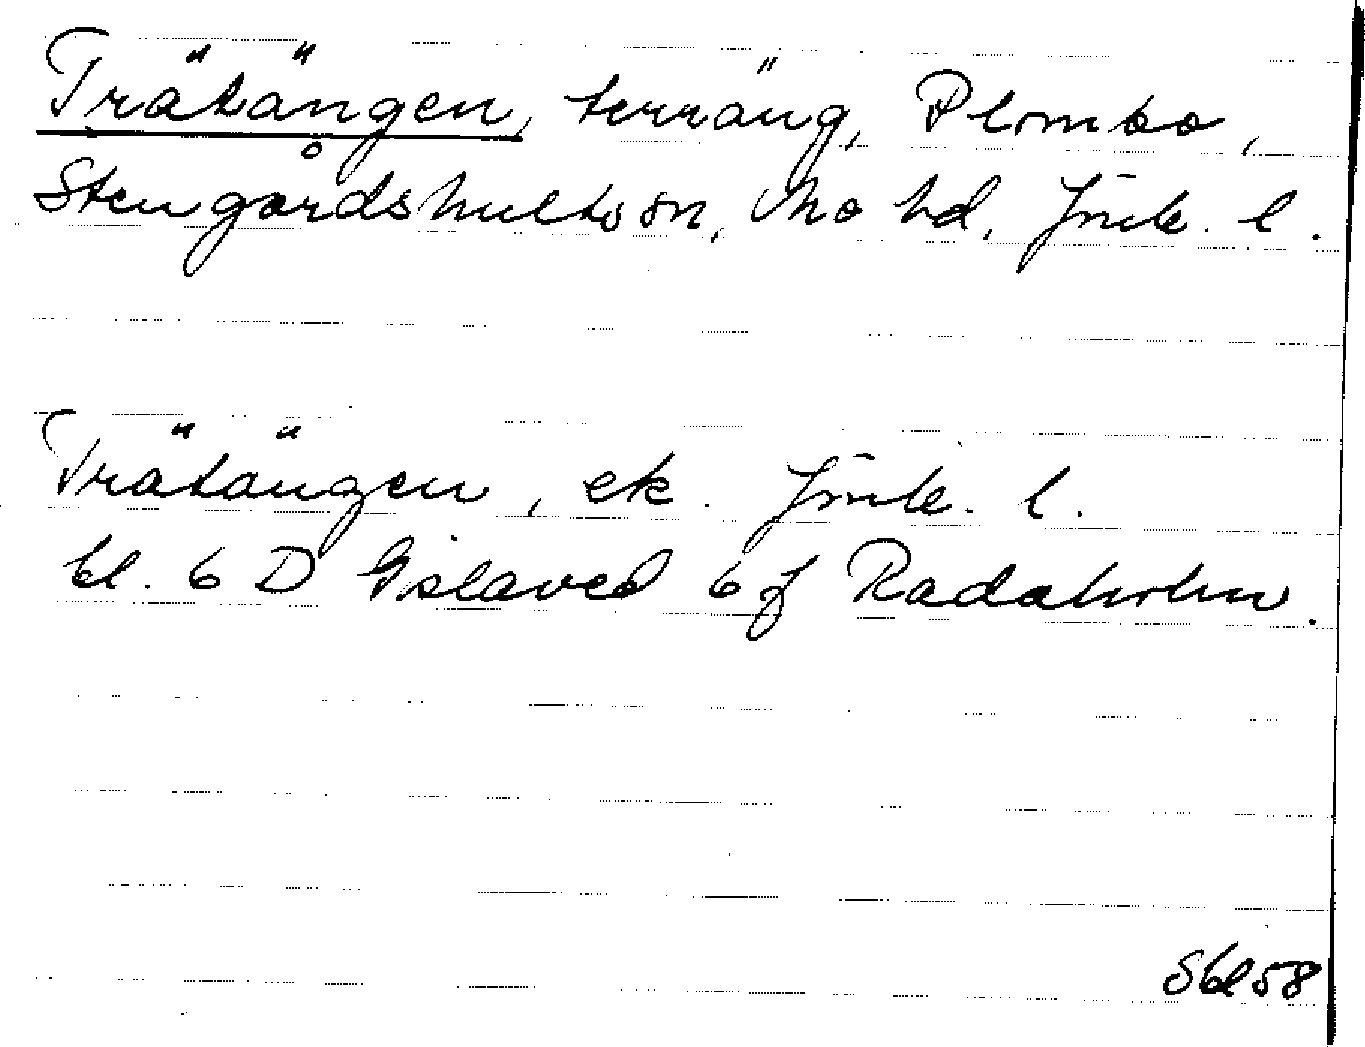 Trätängen, terräng, Plombo,
Stengårdshults sn, Mo hd, Jönk. l.
Trätängen, ek. Jönk. l.
bl. 6 D Gislaved 6 f Radaholm.
Sbl 58